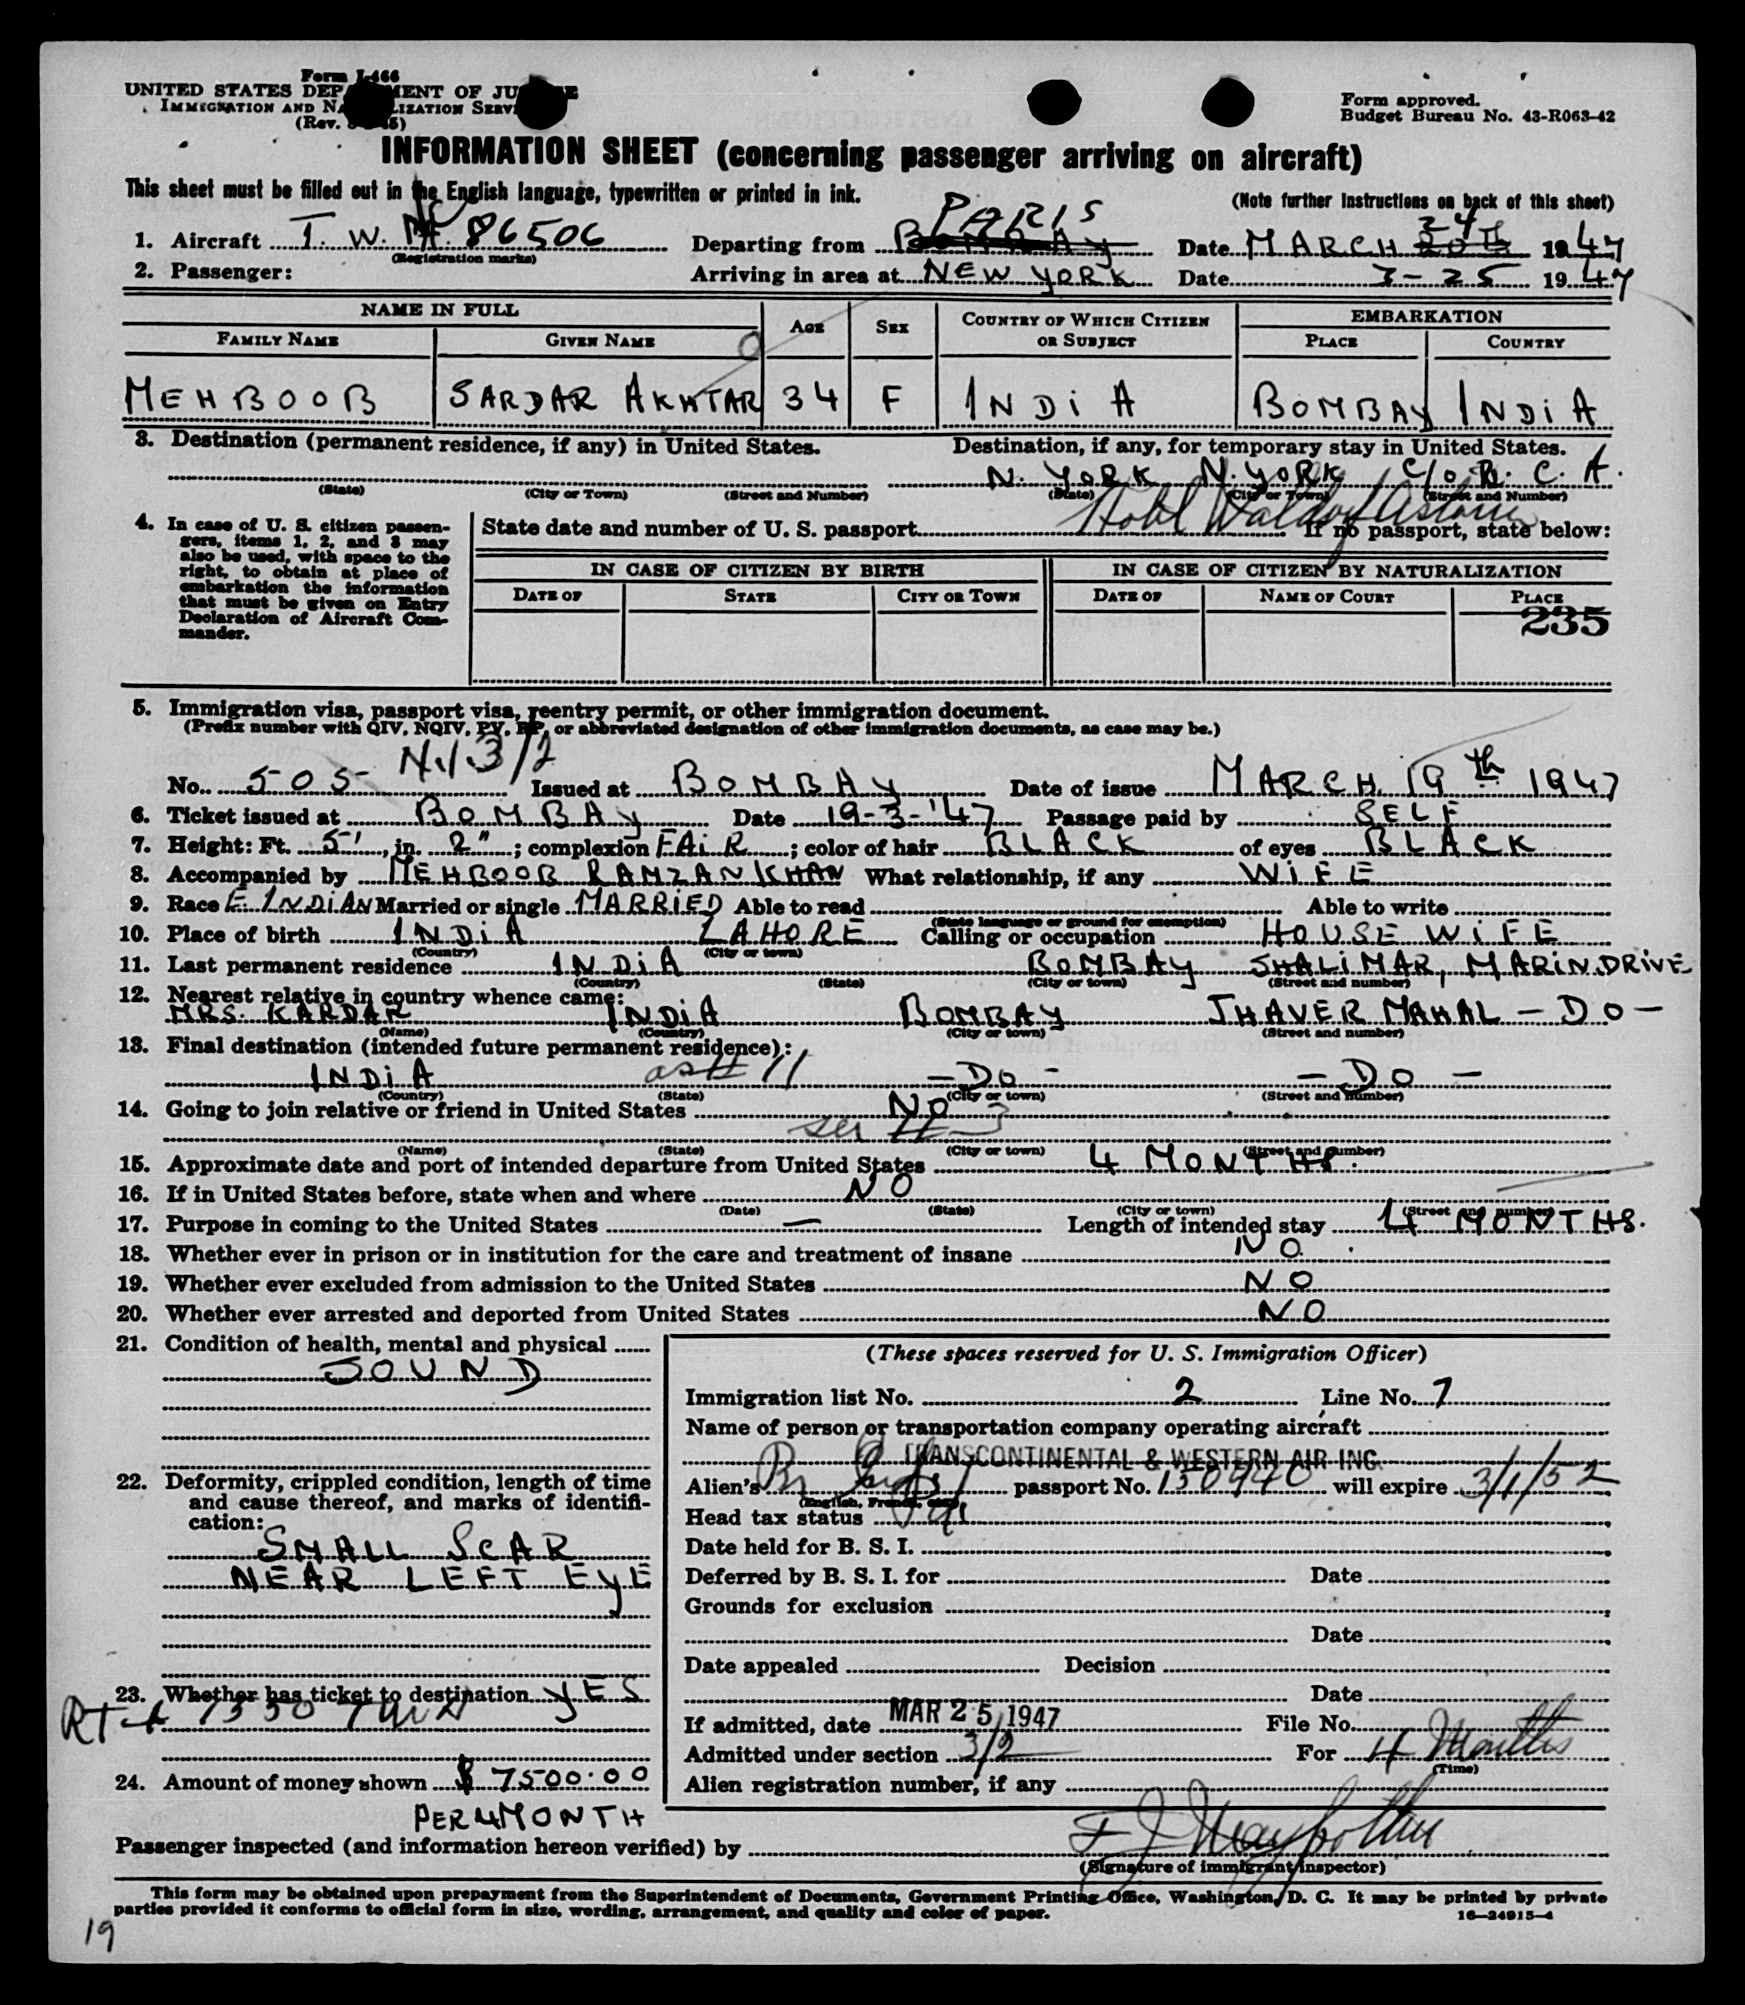 Form I-466
UNITED STATES DEPARTMENT OF JUSTICE
IMMIGRATION AND NATURALIZATION SERVICE
(Rev.
Form approved.
Budget Bureau No. 43-R063-42
INFORMATION SHEET (concerning passenger arriving on aircraft)
This sheet must be filled out in the English language, typewritten or printed in ink.
(Note further instructions on back of this sheet)
1. Aircraft T. W. A. 86506 Departing from BOMBAY PARIS Date MARCH 20th 24 1947
(Registration marks)
2. Passenger: Arriving in area at NEW YORK Date 3-25 1947
NAME IN FULL AGE SEX COUNTRY OF WHICH CITIZEN OR SUBJECT EMBARKATION
FAMILY NAME GIVEN NAME PLACE COUNTRY
MEHBOOB SARDAR AKHTAR 34 F INDIA BOMBAY INDIA
3. Destination (permanent residence, if any) in United States. Destination, if any, for temporary stay in United States.
N. YORK N. YORK C/O R. C. A.
(State) (City or Town) (Street and Number) (State) (City or Town) (Street and Number)
Hotel Waldorf Astoria
4. In case of U. S. citizen passengers, items 1, 2, and 3 may also be used, with space to the right, to obtain at place of embarkation the information that must be given on Entry Declaration of Aircraft Commander.
State date and number of U. S. passport If no passport, state below:
IN CASE OF CITIZEN BY BIRTH IN CASE OF CITIZEN BY NATURALIZATION
DATE OF STATE CITY OR TOWN DATE OF NAME OF COURT PLACE
235
5. Immigration visa, passport visa, reentry permit, or other immigration document.
(Prefix number with QIV, NQIV, PV, RP, or abbreviated designation of other immigration documents, as case may be.)
No. 505 3/2 Issued at BOMBAY Date of issue MARCH 19th 1947
6. Ticket issued at BOMBAY Date 19-3-'47 Passage paid by SELF
7. Height: Ft. 5', in. 2"; complexion FAIR; color of hair BLACK of eyes BLACK
8. Accompanied by MEHBOOB RAMZAN KHAN What relationship, if any WIFE
9. Race E. INDIAN Married or single MARRIED Able to read Able to write
(State language or ground for exemption)
10. Place of birth INDIA LAHORE Calling or occupation HOUSE WIFE
(Country) (City or town)
11. Last permanent residence INDIA BOMBAY SHALIMAR, MARIN DRIVE
(Country) (State) (City or town) (Street and number)
12. Nearest relative in country whence came:
MRS. KARDAR INDIA BOMBAY JHAVER MAHAL - DO -
(Name) (Country) (City or town) (Street and number)
13. Final destination (intended future permanent residence):
INDIA as # 11 - DO - - DO -
(Country) (State) (City or town) (Street and number)
14. Going to join relative or friend in United States NO
see # 3
(Name) (State) (City or town) (Street and number)
15. Approximate date and port of intended departure from United States 4 MONTHS.
16. If in United States before, state when and where NO
(Date) (State) (City or town) (Street and number)
17. Purpose in coming to the United States — Length of intended stay 4 MONTHS.
18. Whether ever in prison or in institution for the care and treatment of insane NO.
19. Whether ever excluded from admission to the United States NO
20. Whether ever arrested and deported from United States NO
21. Condition of health, mental and physical
SOUND
22. Deformity, crippled condition, length of time and cause thereof, and marks of identification:
SMALL SCAR
NEAR LEFT EYE
23. Whether has ticket to destination YES
24. Amount of money shown $ 7500.00
PER 4 MONTH
(These spaces reserved for U. S. Immigration Officer)
Immigration list No. 2 Line No. 7
Name of person or transportation company operating aircraft
TRANSCONTINENTAL & WESTERN AIR INC.
Alien's passport No. 150940 will expire 3/1/52
(English, French, etc.)
Head tax status
Date held for B. S. I.
Deferred by B. S. I. for Date
Grounds for exclusion
Date
Date appealed Decision
Date
If admitted, date MAR 25 1947 File No.
Admitted under section 3/2 For 4 Months
(Time)
Alien registration number, if any
Passenger inspected (and information hereon verified) by
(Signature of immigrant inspector)
This form may be obtained upon prepayment from the Superintendent of Documents, Government Printing Office, Washington, D. C. It may be printed by private
parties provided it conforms to official form in size, wording, arrangement, and quality and color of paper.
16—24915-4
19